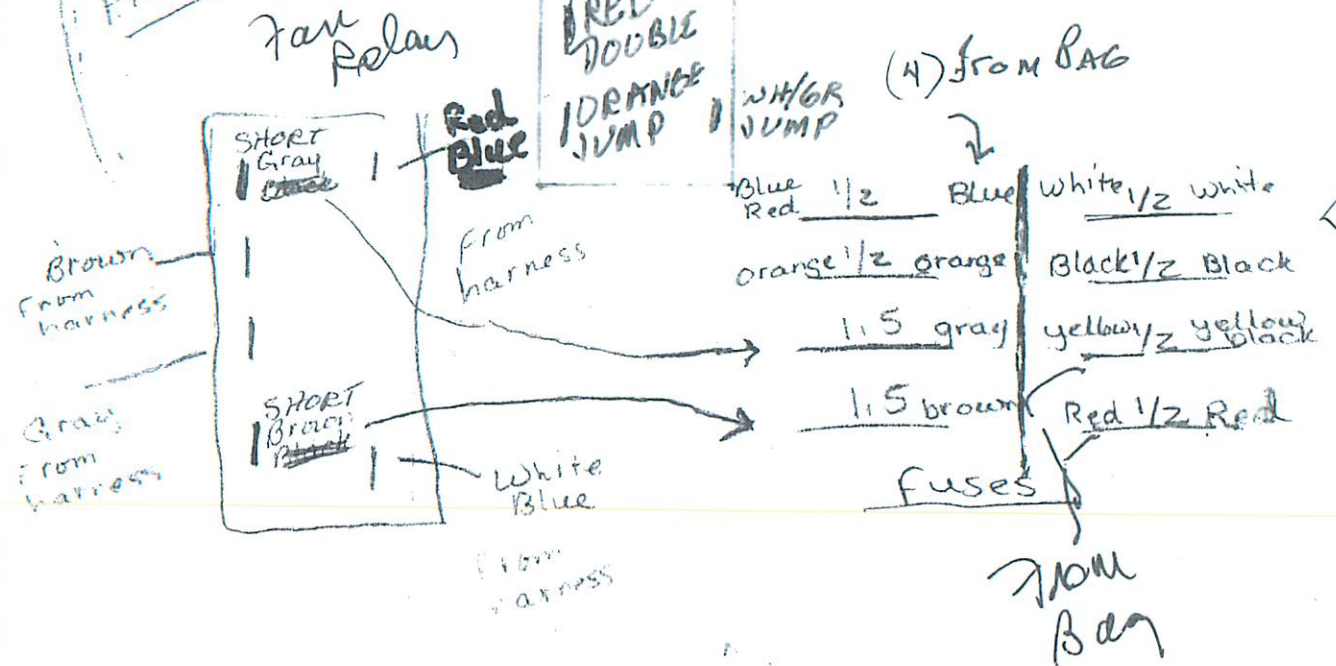 Fan
Relays
RED
DOUBLE
ORANGE
JUMP
WH/GR
JUMP
(4) From BAG
SHORT
Gray
Red
Blue
From
harness
Brown
From
harness
Gray
From
harness
SHORT
Brown
Black
White
Blue
From
harness
Blue
Red 1/2 Blue White 1/2 White
orange 1/2 orange Black 1/2 Black
1.5 gray yellow 1/2 yellow
black
1.5 brown Red 1/2 Red
fuses
From
Bag